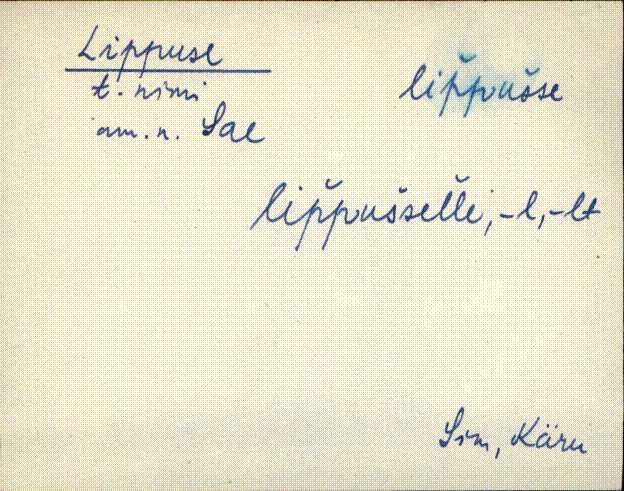 Lippuse
t. nimi
am. n. Sae
lip̆pus̆se
lip̆pus̆sel̆le, -l, -lt
Sim, Käru